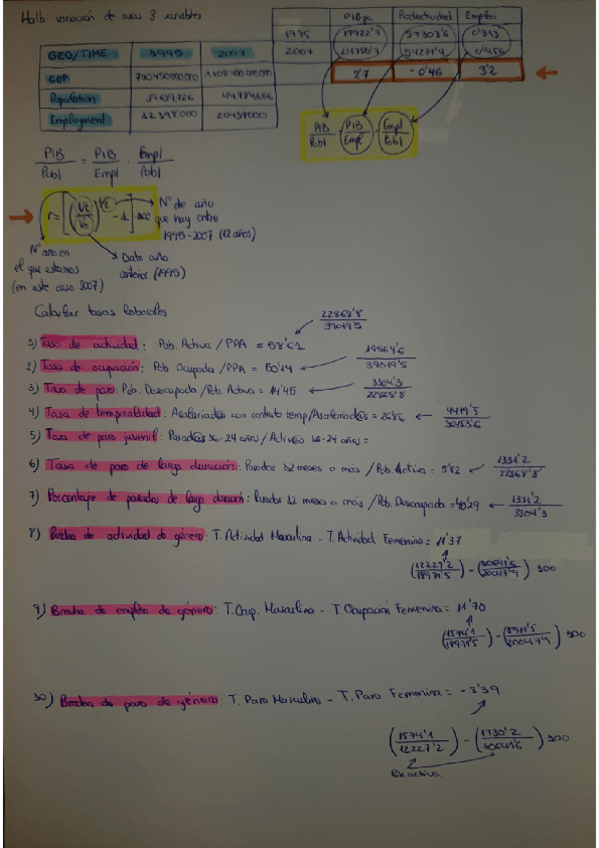 Halla variación de esas 3 variables
PIBpc Productividad Empleo
1995 17922'7 57303'6 0'313
2007 24780'7 54279'4 0'456
2'7 -0'46 3'2
GEO/TIME 1995 2007
GDP
Population 39639.726 44784666
Employment 12398000 20439000
PIB/Pobl · PIB/Empl · Empl/Pobl
PIB/Pobl = PIB/Empl · Empl/Pobl
r = [(Vt/Vo)^1/t - 1] · 100
Nº de año que hay entre 1995-2007 (12 años)
Nº año en el que estamos (en este caso 2007)
Dato año anterior (1995)
Calcular tasas laborales
22868'8/39019'5
1) Tasa de actividad: Pob. Activa / PPA = 58'61
2) Tasa de ocupación: Pob Ocupada / PPA = 50'14 ← 19564'6/39019'5
3) Tasa de paro: Pob. Desocupada / Pob. Activa = 14'45 ← 3304'3/22868'8
4) Tasa de temporalidad: Asalariad@s con contrato temp/Asalariad@s = 26'86 ← 4419'5/16453'6
5) Tasa de paro juvenil: Parad@s 16-24 años / Activ@s 16-24 años =
6) Tasa de paro de larga duración: Parados 12 meses o más / Pob. Activa = 5'82 ← 1331'2/22868'8
7) Porcentaje de parados de larga duración: Parados 12 meses o más / Pob. Desocupada = 40'29 ← 1331'2/3304'3
8) Brecha de actividad de género: T. Actividad Masculina - T. Actividad Femenina = 11'37
(12227'2/18971'5) - (10641'6/20047'9) 100
9) Brecha de empleo de género: T. Ocup. Masculina - T. Ocupación Femenina = 11'70
(1574'1/18971'5) - (8911'5/20047'9) 100
10) Brecha de paro de género: T. Paro Masculino - T. Paro Femenina = -3'39
(1574'1/12227'2) - (1730'2/10641'6) 100
Pob. activa